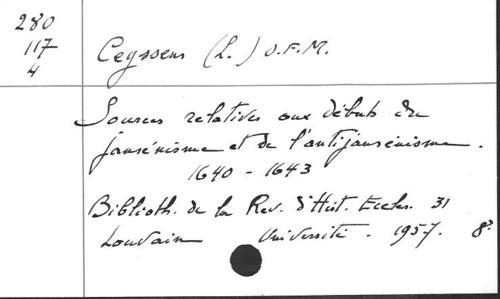 280
117
4
Ceyssens (L.) O.F.M.
Sources relatives aux débuts du
jansénisme et de l'antijansénisme.
1640 - 1643
Biblioth. de la Rev. d'Hist. Eccles. 31
Louvain Université. 1957. 8°